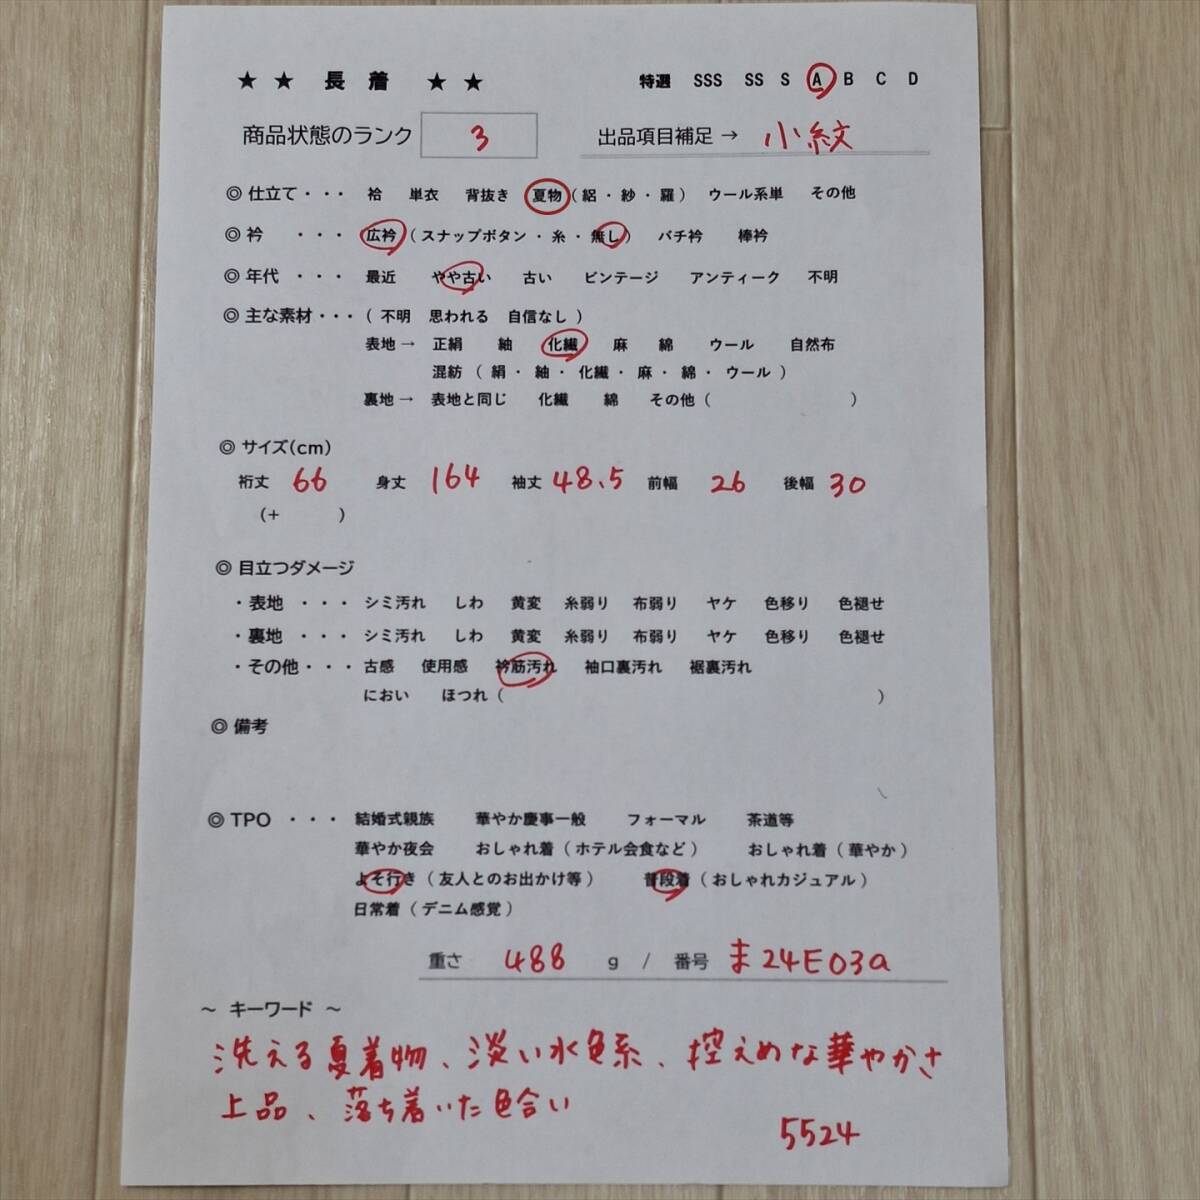 ★ ★ 長 着 ★ ★ 特選 SSS SS S A B C D
商品状態のランク 3 出品項目補足 → 小紋
◎ 仕立て・・・ 袷 単衣 背抜き 夏物 ( 絽 ・ 紗 ・ 羅 ) ウール系単 その他
◎ 衿 ・・・ 広衿 ( スナップボタン ・ 糸 ・ 無し ) バチ衿 棒衿
◎ 年代 ・・・ 最近 やや古い 古い ビンテージ アンティーク 不明
◎ 主な素材・・・ ( 不明 思われる 自信なし )
表地 → 正絹 紬 化繊 麻 綿 ウール 自然布
混紡 ( 絹 ・ 紬 ・ 化繊 ・ 麻 ・ 綿 ・ ウール )
裏地 → 表地と同じ 化繊 綿 その他 ( )
◎ サイズ(cm)
裄丈 66 身丈 164 袖丈 48.5 前幅 26 後幅 30
(+ )
◎ 目立つダメージ
・表地 ・・・ シミ汚れ しわ 黄変 糸弱り 布弱り ヤケ 色移り 色褪せ
・裏地 ・・・ シミ汚れ しわ 黄変 糸弱り 布弱り ヤケ 色移り 色褪せ
・その他・・・ 古感 使用感 衿筋汚れ 袖口裏汚れ 裾裏汚れ
におい ほつれ ( )
◎ 備考
◎ TPO ・・・ 結婚式親族 華やか慶事一般 フォーマル 茶道等
華やか夜会 おしゃれ着 ( ホテル会食など ) おしゃれ着 ( 華やか )
よそ行き ( 友人とのお出かけ等 ) 普段着 ( おしゃれカジュアル )
日常着 ( デニム感覚 )
重さ 488 g / 番号 ま24E03a
～ キーワード ～
洗える夏着物、淡い水色系、控えめな華やかさ
上品、落ち着いた色合い
5524